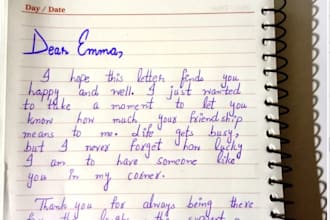 Day / Date
Dear Emma,
I hope this letter finds you
happy and well. I just wanted
to take a moment to let you
know how much your friendship
means to me. Life gets busy,
but I never forget how lucky
I am to have someone like
you in my corner.
Thank you for always being there